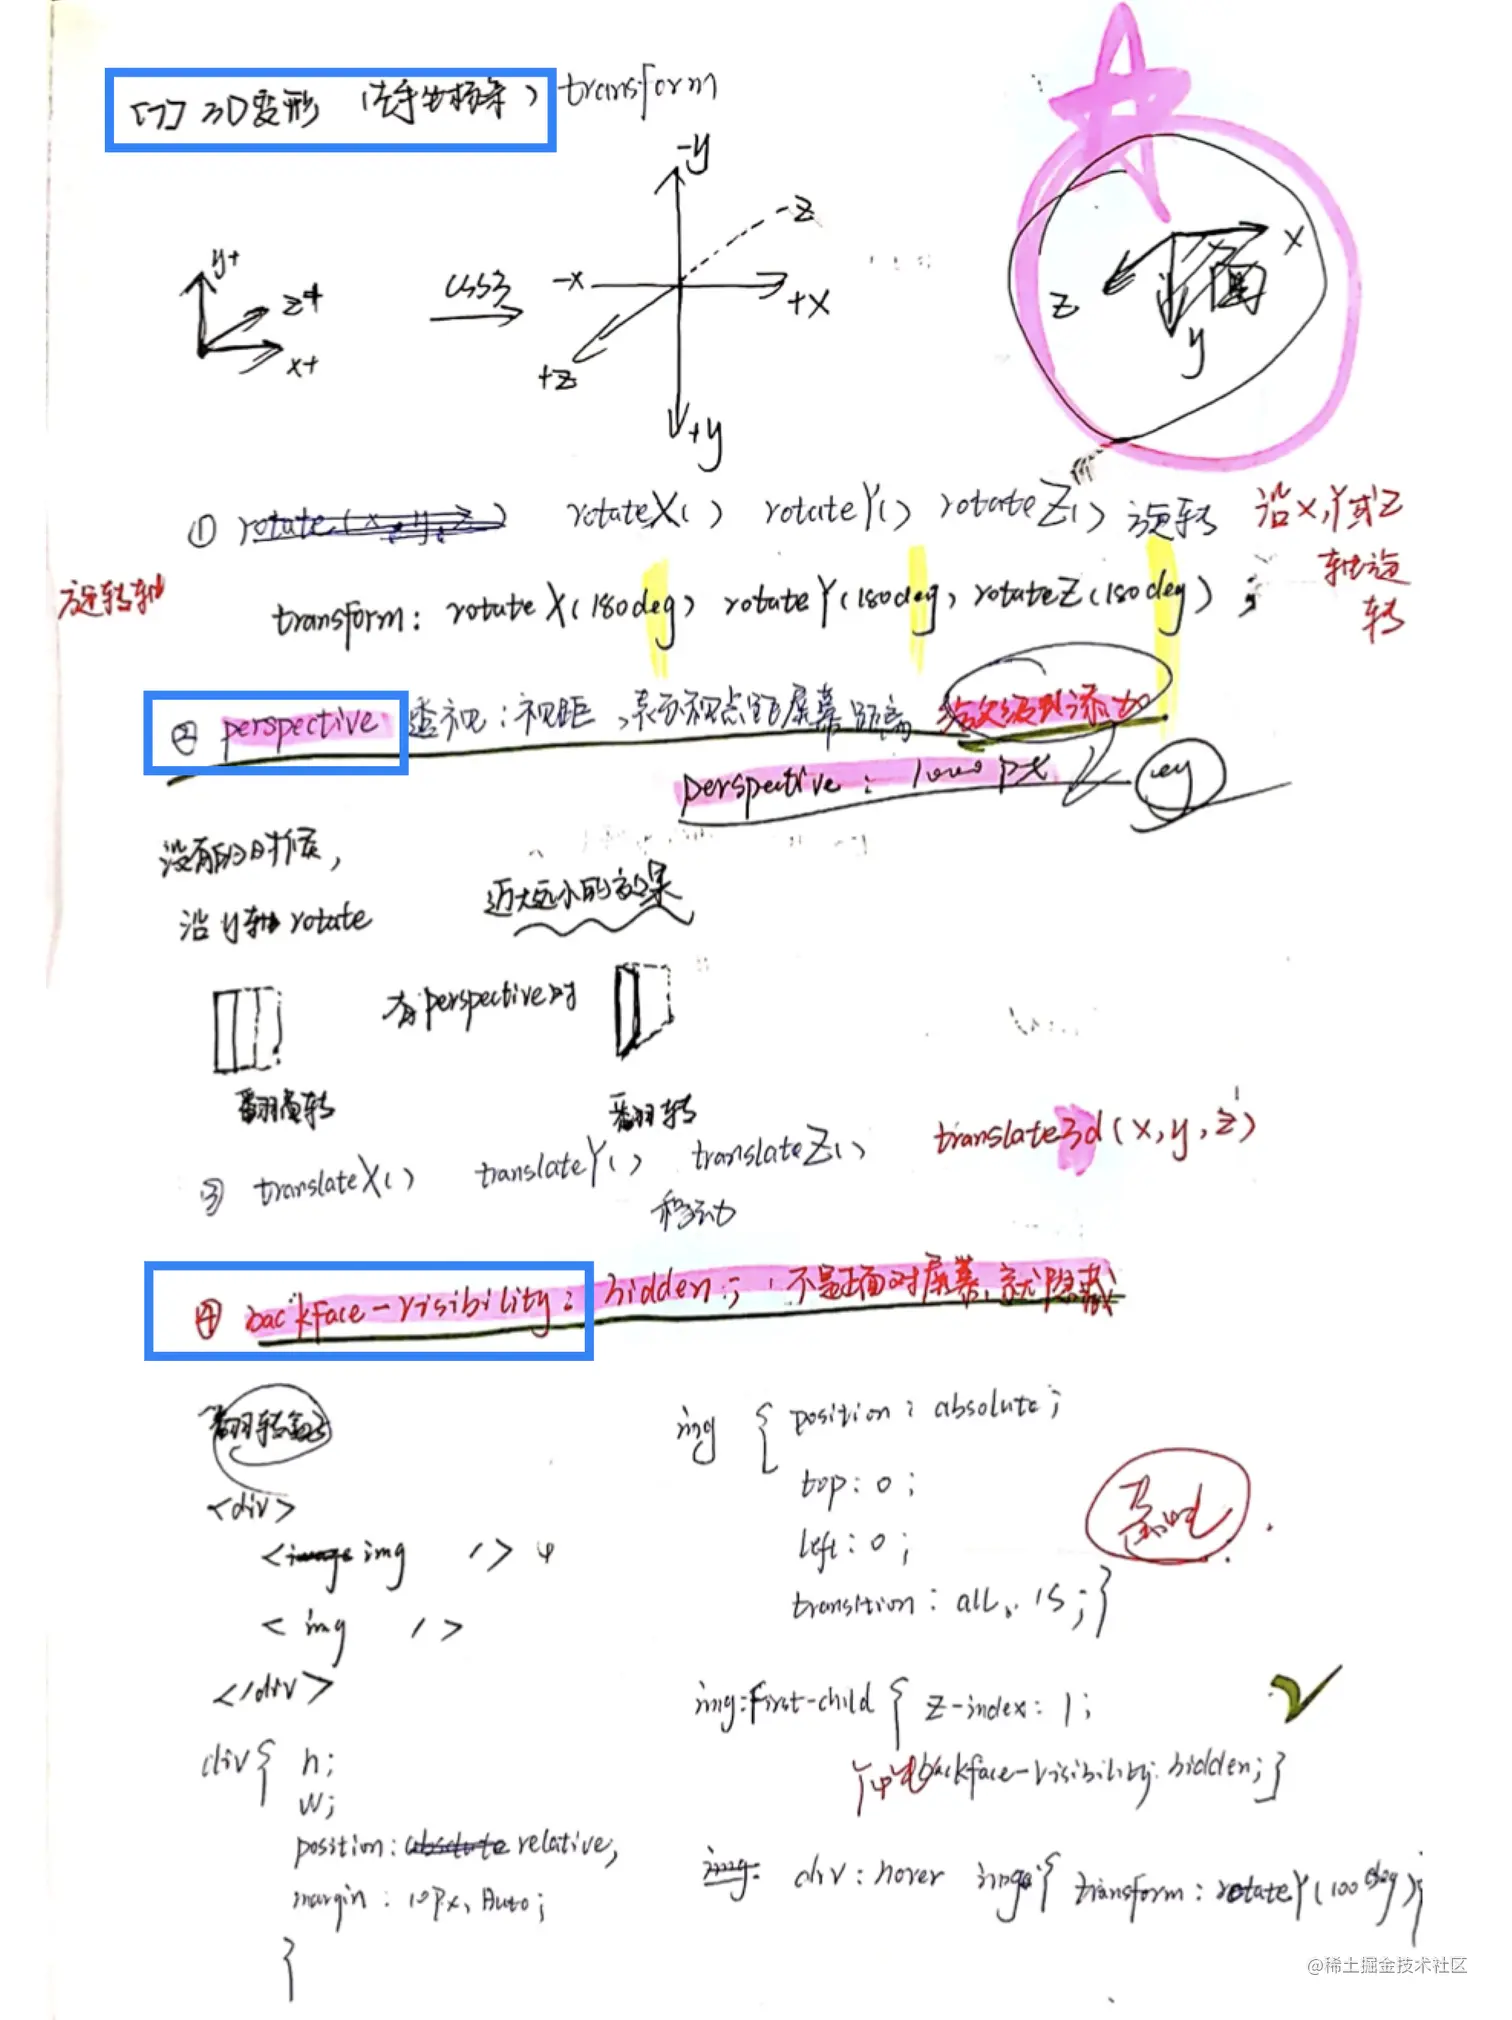 [7] 3D变形 (左手坐标系) transform
-y
-z
y+
z+
x+
css3
-x
+x
+z
+y
x
z
y
① rotate(x,y,z) rotateX() rotateY() rotateZ() 旋转 沿x,y或z
轴旋
转
旋转轴
transform: rotateX(180deg) rotateY(180deg) rotateZ(180deg);
② perspective 透视:视距,表示视点距屏幕距离 给父级添加
perspective: 1000px
没有的时候,
沿y轴rotate
近大远小的效果
有perspective时
翻转
翻转
③ translateX() translateY() translateZ() translate3d(x,y,z)
移动
④ backface-visibility: hidden; 不是正面对屏幕,就隐藏
翻转
<div>
<image img />
< img />
</div>
div{ h;
w;
position: absolute relative;
margin: 10px, Auto;
}
img { position: absolute;
top: 0;
left: 0;
transition: all, 1s; }
img:first-child { z-index: 1;
backface-visibility: hidden; }
img: div:hover img{ transform: rotateY(100deg);
@稀土掘金技术社区